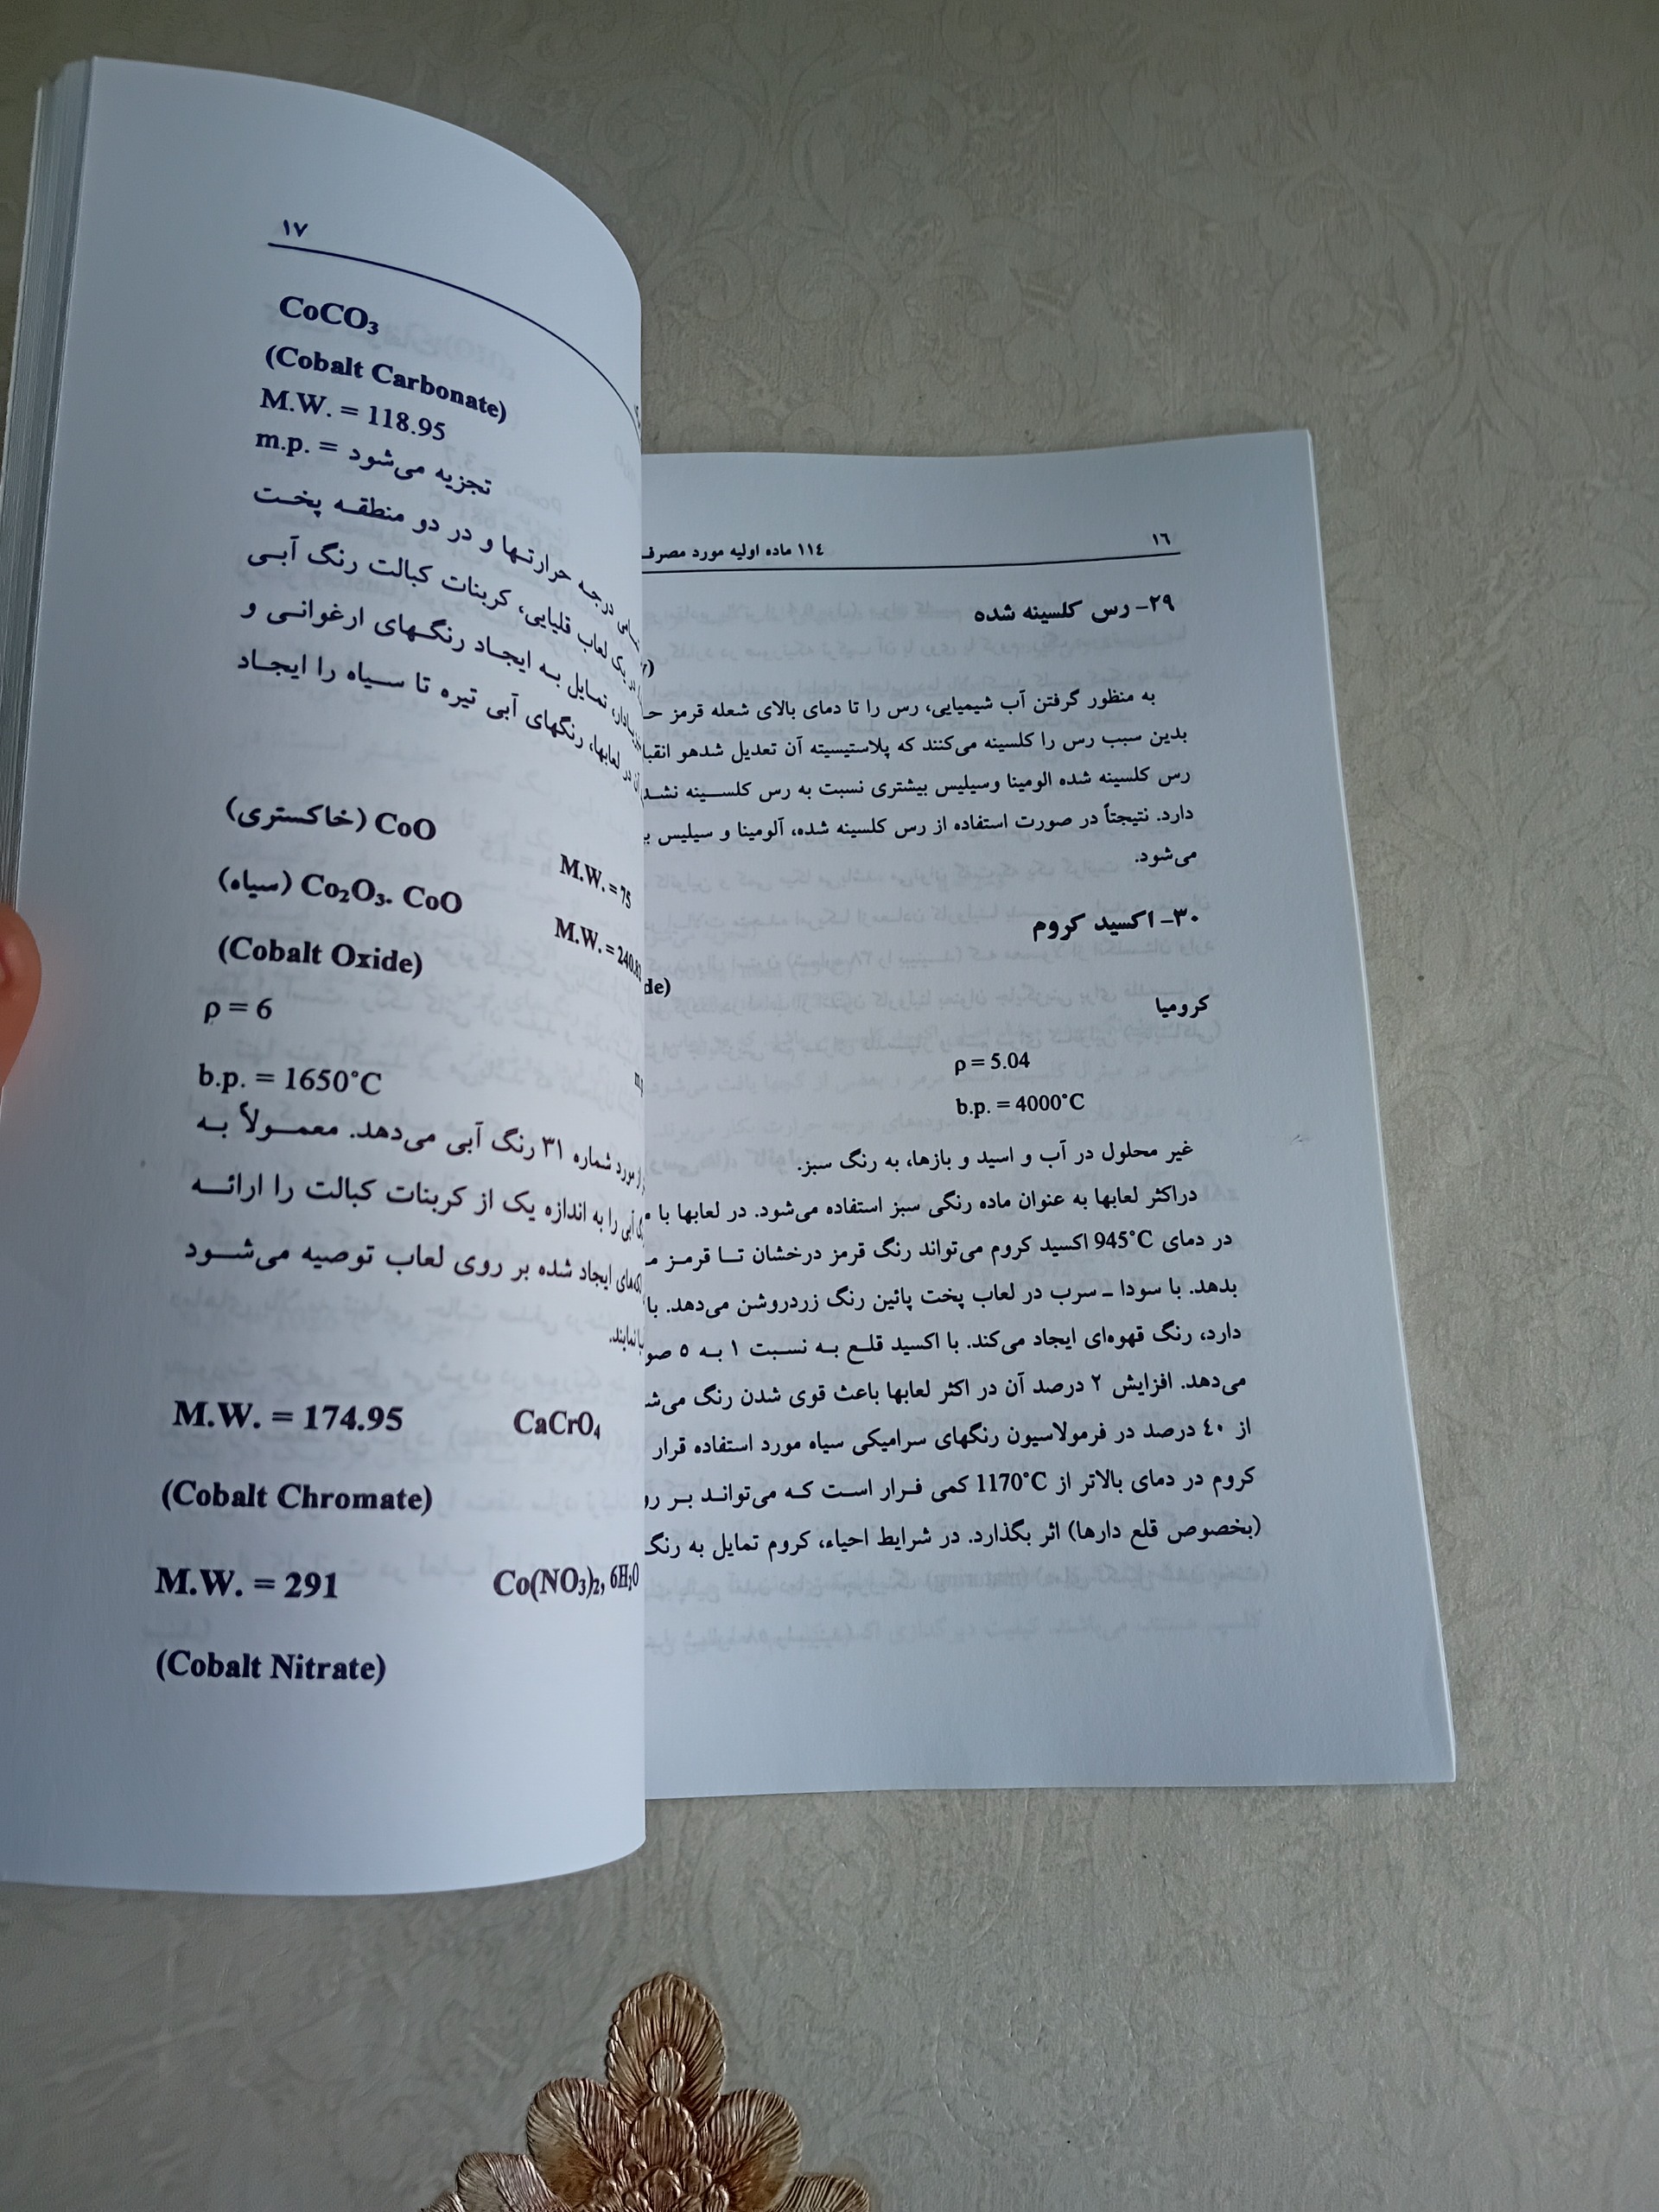 ١٦
١١٤ ماده اولیه مورد مصرف
٢٩- رس کلسینه شده
به منظور گرفتن آب شیمیایی، رس را تا دمای بالای شعله قرمز
بدین سبب رس را کلسینه می‌کنند که پلاستیسیته آن تعدیل شدهو
رس کلسینه شده الومینا وسیلیس بیشتری نسبت به رس کلسینه
دارد. نتیجتاً در صورت استفاده از رس کلسینه شده، آلومینا و سیلیس
می‌شود.
٣٠- اکسید کروم
de)
کرومیا
ρ = 5.04
b.p. = 4000°C
غیر محلول در آب و اسید و بازها، به رنگ سبز.
دراکثر لعابها به عنوان ماده رنگی سبز استفاده می‌شود. در لعابها با
در دمای 945°C اکسید کروم می‌تواند رنگ قرمز درخشان تا قرمز
بدهد. با سودا ـ سرب در لعاب پخت پائین رنگ زردروشن می‌دهد. با
دارد، رنگ قهوه‌ای ایجاد می‌کند. با اکسید قلع به نسبت ١ به ٥
می‌دهد. افزایش ٢ درصد آن در اکثر لعابها باعث قوی شدن رنگ
از ٤٠ درصد در فرمولاسیون رنگهای سرامیکی سیاه مورد استفاده قرار
کروم در دمای بالاتر از 1170°C کمی فرار است که می‌تواند بر
(بخصوص قلع دارها) اثر بگذارد. در شرایط احیاء، کروم تمایل به رنگ
١٧
CoCO₃
(Cobalt Carbonate)
M.W. = 118.95
m.p. = تجزیه می‌شود
درجه حرارتها و در دو منطقه پخت
در یک لعاب قلیایی، کربنات کبالت رنگ آبی
تمایل به ایجاد رنگهای ارغوانی و
در لعابها، رنگهای آبی تیره تا سیاه را ایجاد
CoO (خاکستری)
M.W. = 75
Co₂O₃. CoO (سیاه)
M.W. = 240.82
(Cobalt Oxide)
ρ = 6
b.p. = 1650°C
مورد شماره ٣١ رنگ آبی می‌دهد. معمولاً به
آبی را به اندازه یک از کربنات کبالت را ارائه
ایجاد شده بر روی لعاب توصیه می‌شود
نمایند.
CaCrO₄ M.W. = 174.95
(Cobalt Chromate)
Co(NO₃)₂, 6H₂O M.W. = 291
(Cobalt Nitrate)